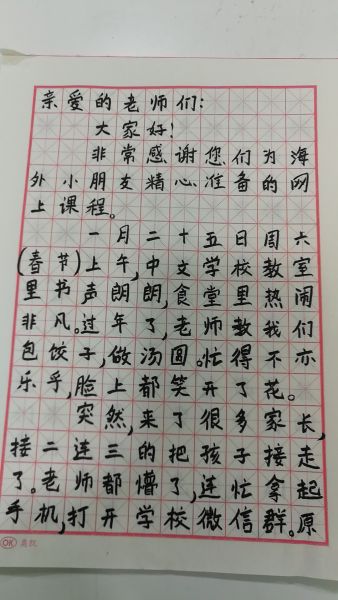 亲爱的老师们:
大家好!
非常感谢您们为海
外小朋友精心准备的网
上课程。
一月二十五日周六
(春节)上午,中文学校教室
里书声朗朗,食堂里热闹
非凡。过年了,老师教我们
包饺子,做汤圆。忙得不亦
乐乎,脸上都笑开了花。
突然,来了很多家长,
接二连三的把孩子接走
了。老师都懵了,连忙拿起
手机,打开学校微信群。原
OK